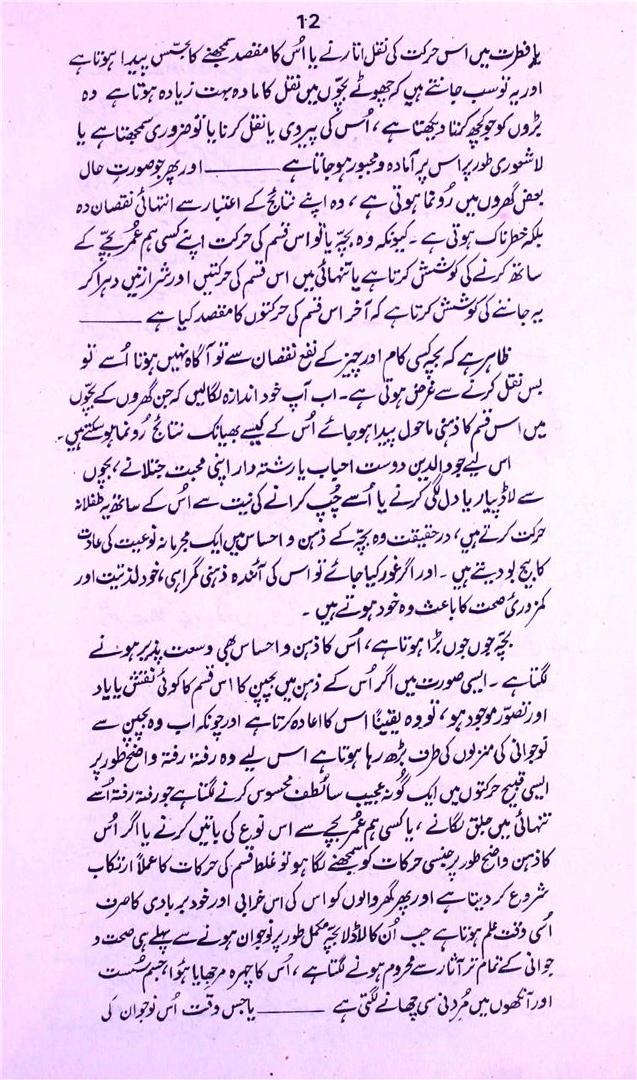 12
یا فطرت میں اس حرکت کی نقل اتارنے یا اُس کا مقصد سمجھنے کا تجسّس پیدا ہوتا ہے
اور یہ تو سب جانتے ہیں کہ چھوٹے بچّوں میں نقل کا مادہ بہت زیادہ ہوتا ہے وہ
بڑوں کو جو کچھ کرتا دیکھتا ہے، اُس کی پیروی یا نقل کرنا یا تو ضروری سمجھتا ہے یا
لاشعوری طور پر اس پر آمادہ و مجبور ہو جاتا ہے ——— اور پھر جو صورتِ حال
بعض گھروں میں رُونما ہوتی ہے، وہ اپنے نتائج کے اعتبار سے انتہائی نقصان دہ
بلکہ خطرناک ہوتی ہے۔ کیونکہ وہ بچّہ یا تو اس قسم کی حرکت اپنے کسی ہم عمر بچّے کے
ساتھ کرنے کی کوشش کرتا ہے یا تنہائی میں اس قسم کی حرکتیں اور شرارتیں دہرا کر
یہ جاننے کی کوشش کرتا ہے کہ آخر اس قسم کی حرکتوں کا مقصد کیا ہے ———
ظاہر ہے کہ بچہ کسی کام اور چیز کے نفع نقصان سے تو آگاہ نہیں ہوتا اُسے تو
بس نقل کرنے سے غرض ہوتی ہے۔ اب آپ خود اندازہ لگالیں کہ جن گھروں کے بچّوں
میں اس قسم کا ذہنی ماحول پیدا ہو جائے اُس کے کیسے بھیانک نتائج رُونما ہو سکتے ہیں۔
اس لیے جو والدین دوست احباب یا رشتہ دار اپنی محبت جتلانے، بچوں
سے لاڈ پیار یا دل لگی کرنے یا اُسے چُپ کرانے کی نیت سے اُس کے ساتھ یہ طفلانہ
حرکت کرتے ہیں، درحقیقت وہ بچّہ کے ذہن و احساس میں ایک مجرمانہ نوعیت کی عادت
کا بیج بو دیتے ہیں۔ اور اگر غور کیا جائے تو اس کی آئندہ ذہنی گمراہی، خود لذتیت اور
کمزوریٔ صحت کا باعث وہ خود ہوتے ہیں۔
بچّہ جوں جوں بڑا ہوتا ہے، اُس کا ذہن و احساس بھی وسعت پذیر ہونے
لگتا ہے۔ ایسی صورت میں اگر اُس کے ذہن میں بچپن کا اس قسم کا کوئی نقش یا یاد
اور تصوّر موجود ہو، تو وہ یقیناً اس کا اعادہ کرتا ہے اور چونکہ اب وہ بچپن سے
نوجوانی کی منزلوں کی طرف بڑھ رہا ہوتا ہے اس لیے وہ رفتہ رفتہ واضح طور پر
ایسی قبیح حرکتوں میں ایک گونہ عجیب سا لُطف محسوس کرنے لگتا ہے جو رفتہ رفتہ اُسے
تنہائی میں جلق لگانے، یا کسی ہم عمر بچّے سے اس نوع کی باتیں کرنے یا اگر اُس
کا ذہن واضح طور پر جنسی حرکات کو سمجھنے لگا ہو تو غلط قسم کی حرکات کا عملاً ارتکاب
شروع کر دیتا ہے اور پھر گھر والوں کو اس کی اس خرابی اور خود بربادی کا صرف
اُسی وقت علم ہوتا ہے جب اُن کا لاڈلا بچّہ مکمل طور پر نوجوان ہونے سے پہلے ہی صحت و
جوانی کے تمام تر آثار سے محروم ہونے لگتا ہے، اُس کا چہرہ مرجھایا ہُوا، جسم سُست
اور آنکھوں میں مُردنی سی چھانے لگتی ہے ——— یا جس وقت اُس نوجوان کی